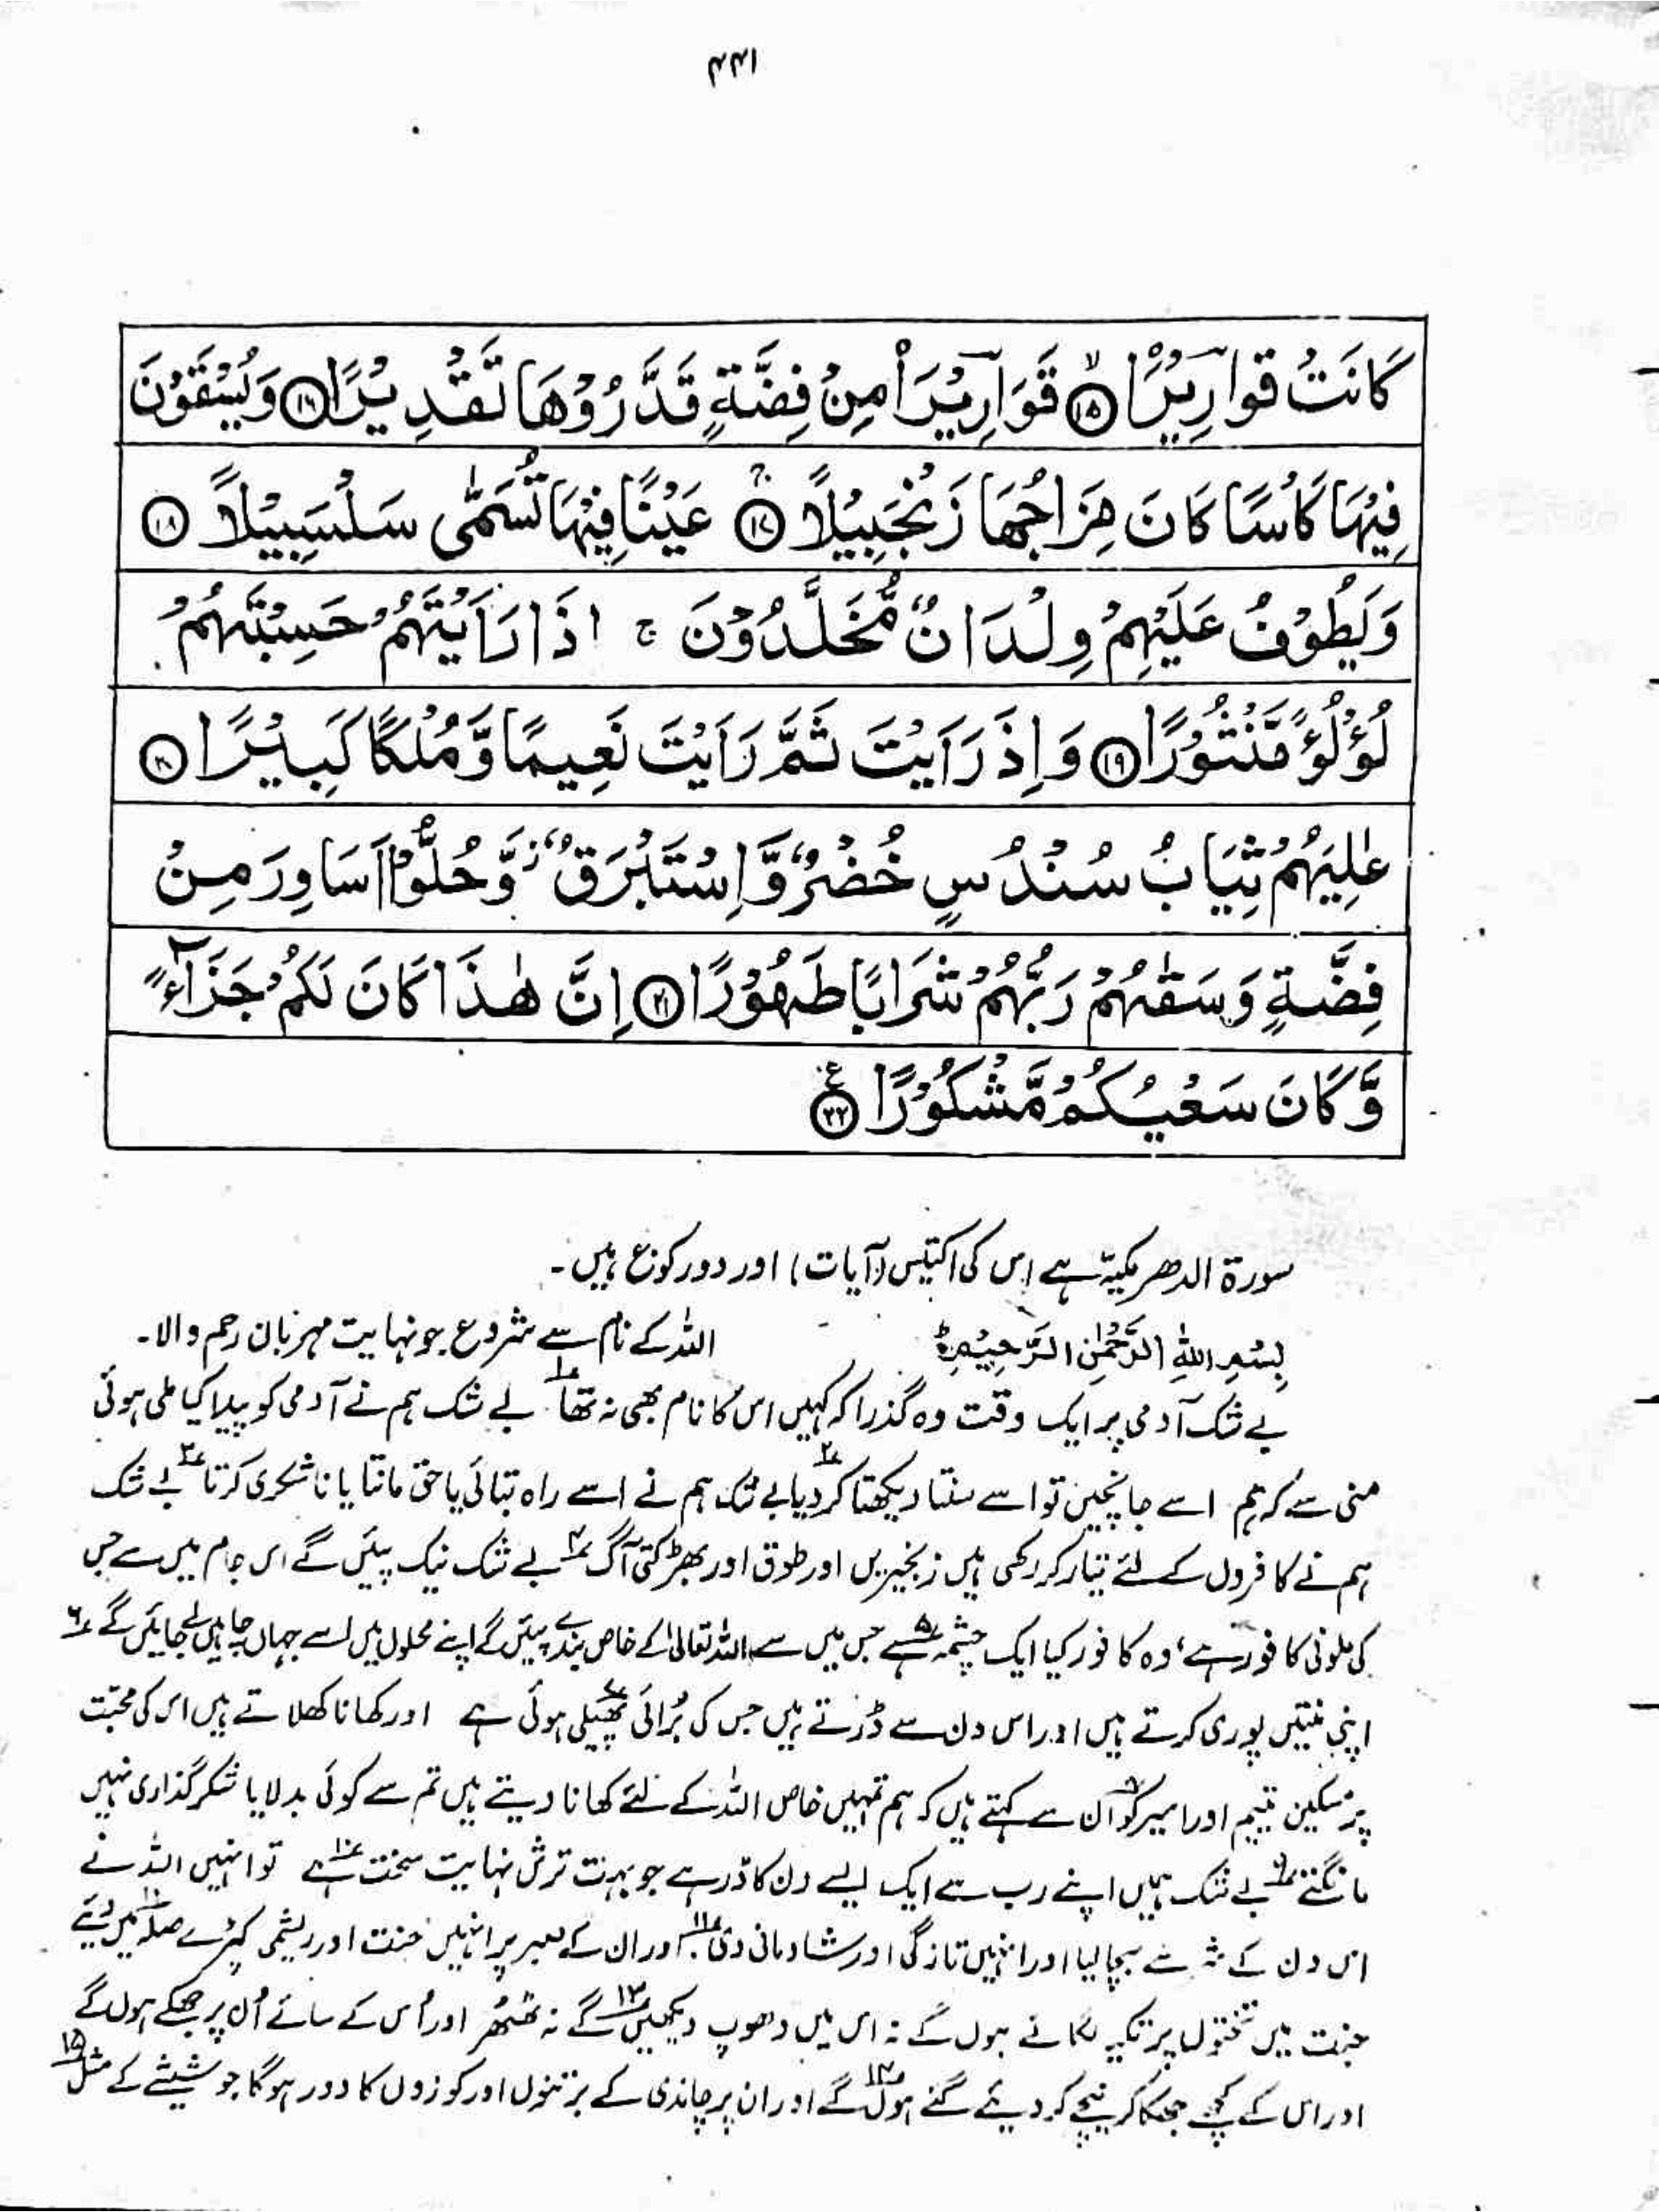 ۴۴۱
كَانَتْ قَوَارِيْرَا۠ ۙ﴿۱۵﴾ قَوَارِيْرَا۟ مِنْ فِضَّةٍ قَدَّرُوْهَا تَقْدِيْرًا ﴿۱۶﴾ وَيُسْقَوْنَ
فِيْهَا كَاْسًا كَانَ مِزَاجُهَا زَنْجَبِيْلًا ۚ﴿۱۷﴾ عَيْنًا فِيْهَا تُسَمّٰى سَلْسَبِيْلًا ﴿۱۸﴾
وَيَطُوْفُ عَلَيْهِمْ وِلْدَانٌ مُّخَلَّدُوْنَ ۚ اِذَا رَاَيْتَهُمْ حَسِبْتَهُمْ
لُؤْلُؤًا مَّنْثُوْرًا ﴿۱۹﴾ وَاِذَ رَاَيْتَ ثَمَّ رَاَيْتَ نَعِيمًا وَّمُلْكًا كَبِيْرًا ﴿۲۰﴾
عٰلِيَهُمْ ثِيَابُ سُنْدُسٍ خُضْرٌ وَّاِسْتَبْرَقٌ ز وَّحُلُّوْٓا اَسَاوِرَ مِنْ
فِضَّةٍ وَسَقٰىهُمْ رَبُّهُمْ شَرَابًا طَهُوْرًا ﴿۲۱﴾ اِنَّ هٰذَا كَانَ لَكُمْ جَزَآءً
وَّكَانَ سَعْيُكُمْ مَّشْكُوْرًا ﴿۲۲﴾ ع
سورۃ الدھر مکیۃ ہے اس کی اکتیس (آیات) اور دو رکوع ہیں۔
بِسْمِ اللّٰهِ الرَّحْمٰنِ الرَّحِيْمِ اللہ کے نام سے شروع جو نہایت مہربان رحم والا۔
بے شک آدمی پر ایک وقت وہ گذرا کہ کہیں اس کا نام بھی نہ تھا ؎۱ بے شک ہم نے آدمی کو پیدا کیا ملی ہوئی
منی سے کہ ہم اسے جانچیں تو اسے سنتا دیکھتا کر دیا ؎۲ بے شک ہم نے اسے راہ بتائی یا حق مانتا یا ناشکری کرتا ؎۳ بے شک
ہم نے کافروں کے لئے تیار کر رکھی ہیں زنجیریں اور طوق اور بھڑکتی آگ ؎۴ بے شک نیک پئیں گے اس جام میں سے جس
کی ملونی کافور ہے، وہ کافور کیا ایک چشمہ ہے ؎۵ جس میں سے اللہ تعالیٰ کے خاص بندے پئیں گے اپنے محلوں میں اسے جہاں چاہیں لے جائیں گے ؎۶
اپنی منتیں پوری کرتے ہیں اور اس دن سے ڈرتے ہیں جس کی بُرائی پھیلی ہوئی ہے ؎۷ اور کھانا کھلاتے ہیں اس کی محبّت
پر مسکین یتیم اور اسیر کو ؎۸ اُن سے کہتے ہیں کہ ہم تمہیں خاص اللہ کے لئے کھانا دیتے ہیں تم سے کوئی بدلا یا شکر گذاری نہیں
مانگتے ؎۹ بے شک ہمیں اپنے رب سے ایک ایسے دن کا ڈر ہے جو بہت ترش نہایت سخت ہے ؎۱۰ تو انہیں اللہ نے
اس دن کے شر سے بچا لیا اور انہیں تازگی اور شادمانی دی ؎۱۱ اور ان کے صبر پر انہیں جنت اور ریشمی کپڑے صلہ میں دیئے ؎۱۲
جنت میں تختوں پر تکیہ لگائے ہوں گے نہ اس میں دھوپ دیکھیں گے ؎۱۳ نہ ٹھٹھر اور اُس کے سائے اُن پر جھکے ہوں گے
اور اس کے گچھے جھکا کر نیچے کر دیئے گئے ہوں گے ؎۱۴ اور ان پر چاندی کے برتنوں اور کوزوں کا دور ہوگا جو شیشے کے مثل ؎۱۵